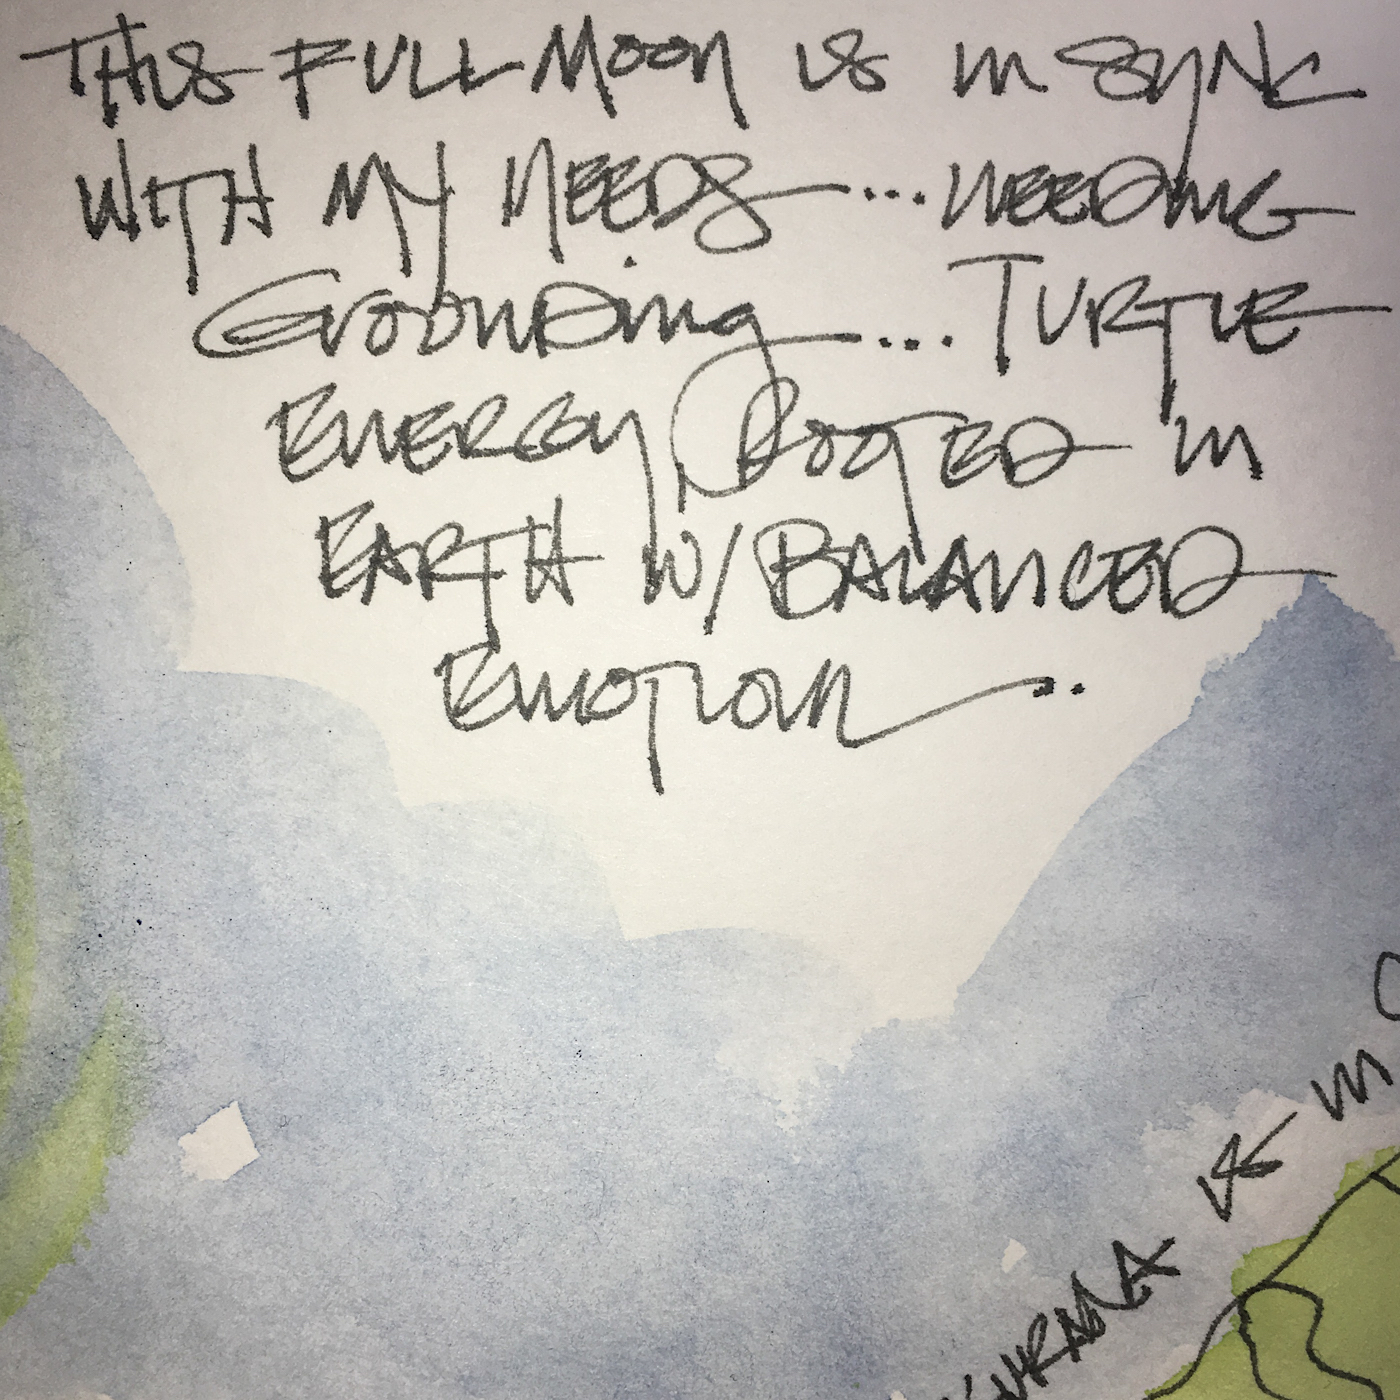 THIS FULL MOON IS IN SYNC
WITH MY NEEDS...NEEDING
GROUNDING... TURTLE
ENERGY, ROOTED IN
EARTH W/BALANCED
EMOTION..
IN